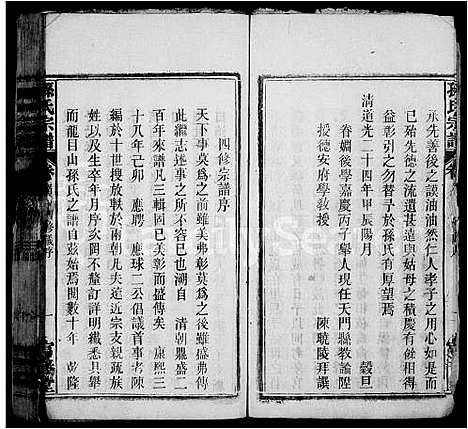 永先善後之謨油油然仁人孝子之用心如見
已殆先德之流遺甚遠與姑母之積慶有以
益彰引之勿替予於孫氏有厚望焉
清道光二十四年甲辰陽月 穀旦
眷姻後學嘉慶丙子舉人現任天門縣教諭陞
授德安府學教授 陳曉陵拜譔
四修宗譜序
天下事莫爲之前雖美弗彰莫爲之後雖盛弗傳
此繼志述事之不容已也溯自 清朝鼎盛二
百年來譜凡三修固已美彰而盛傳矣 康熙三
十八年己卯 應聘 應球二公倡議首事者陳
編於十世搜放軼於兩朝凡夫遠近宗支親疏族
姓以及生卒年月序次罔不釐訂詳明纖悉具舉
而龍目山孫氏之譜自茲始焉閱數十年 乾隆
孫氏宗譜
孫氏宗譜